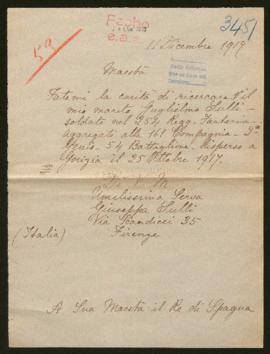 3451
Fecho
e.a.s.
59
11 Dicembre 1917
Maestà
Fatemi la carità di ricercare il
mio marito Guglielmo Lulli
soldato nel 252 Regg. Fanteria
aggregato alla 141 Compagnia - 2º
54 Battaglione. disperso a
Gorizia il 25 Ottobre 1917.
Di V. M.
Umilissima Serva
Giuseppa Lulli
Via Scandicci 35
(Italia) Firenze
A Sua Maestà il Re di Spagna